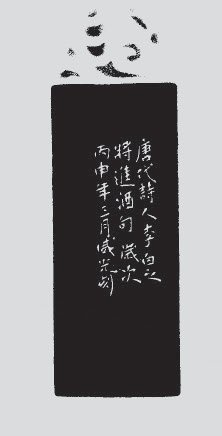 唐代詩人李白之
將進酒句歲次
丙申年三月威光刻